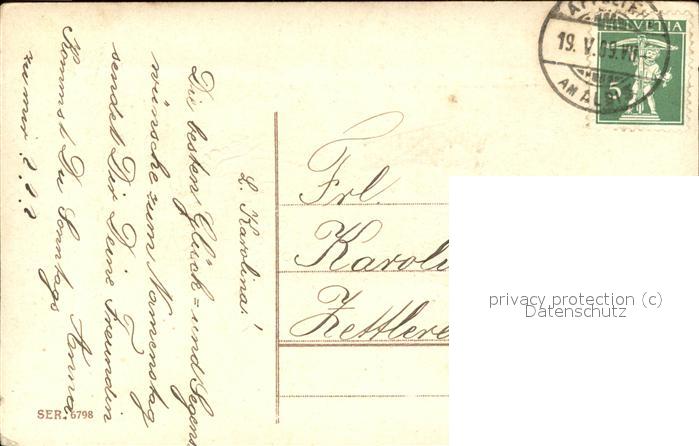 L. Karolina!
Die besten Glück= und Segens
wünsche zum Namenstag
sendet Dir Deine Freundin
Anna.
Kommst Du Sonntags
zu mir ? ? ?
Frl.
Karoli
Zettlere
HELVETIA
5
19. V. 09. VII
AM ALBIS
SER. 6798
privacy protection (c)
Datenschutz